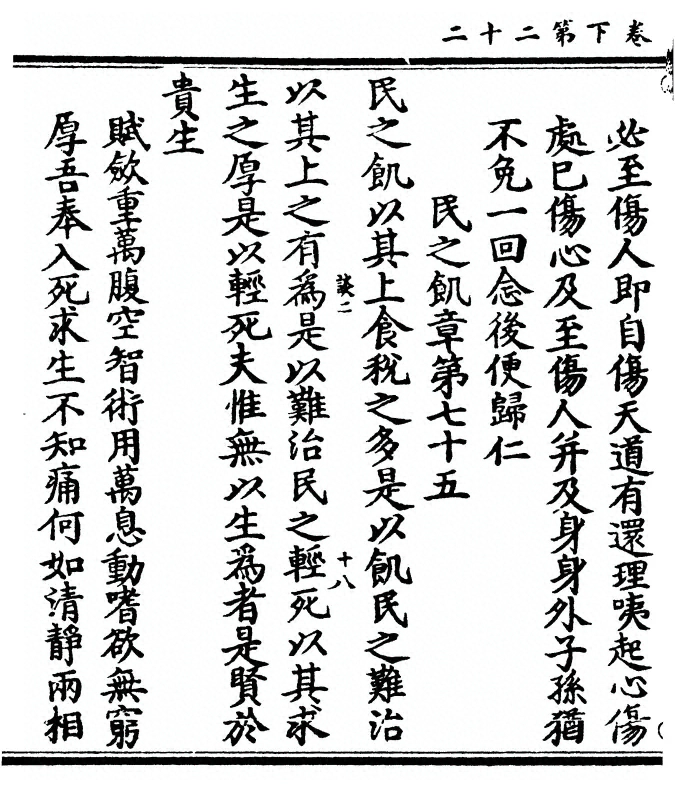 卷下第二十二
必至傷人即自傷天道有還理咦起心傷
處已傷心及至傷人并及身身外子孫猶
不免一回念後便歸仁
民之飢章第七十五
民之飢以其上食稅之多是以飢民之難治
談二
十八
以其上之有為是以難治民之輕死以其求
生之厚是以輕死夫惟無以生為者是賢於
貴生
賦斂重萬腹空智術用萬息動嗜欲無窮
厚吾奉入死求生不知痛何如清靜兩相